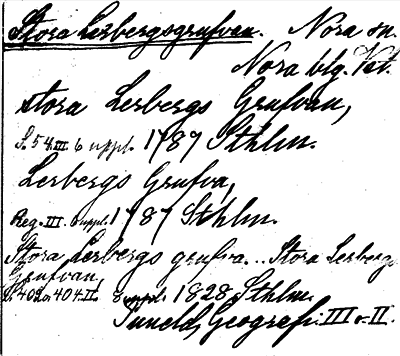 Stora Lerbergsgrufvan. Nora sn.
Nora blg. Vstl.
Stora Lerbergs Grufvan,
S. 54. III. 6 uppl. 1787 Sthlm.
Lerbergs Grufva,
Reg. III. 6 uppl. 1787 Sthlm.
Stora Lerbergs grufva.. Stora Lerbergs
Grufvan,
S. 402 o. 404. II. 8 uppl. 1828 Sthlm.
Tuneld, Geografi. III o. II.